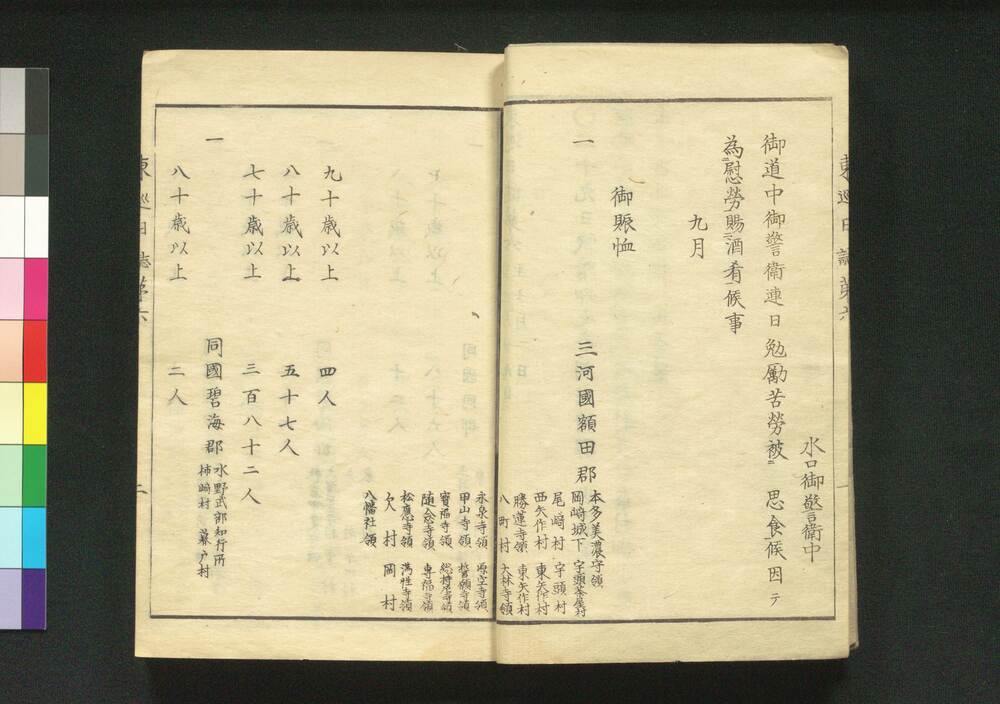 水口御警衛中
御道中御警衛連日勉励苦勞被ニ思食候因テ
為慰勞賜酒肴候事
九月
御賑恤
一 三河國額田郡
本多美濃守領
岡崎城下 宇頭茶屋村
尾﨑村 宇頭村
西矢作村 東矢作村
勝蓮寺領 東矢作村
八町村 大林寺領
永泉寺領 源空寺領
甲山寺領 誓願寺領
寳福寺領 総持尼寺領
随念寺領 専福寺領
松應寺領 満性寺領
欠村 岡村
八幡社領
九十歳以上 四人
八十歳以上 五十七人
七十歳以上 三百八十二人
一 同國碧海郡
水野式部知行所
柿﨑村
八十歳以上 二人
東巡日誌第六
一
東巡日誌第六
二